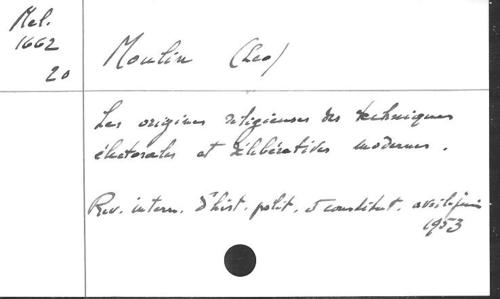 Mel.
1662
20
Moulin (Leo)
Les origines religieuses des techniques
électorales et délibératives modernes.
Rev. intern. d'hist. polit. & constitut. avril-juin
1953